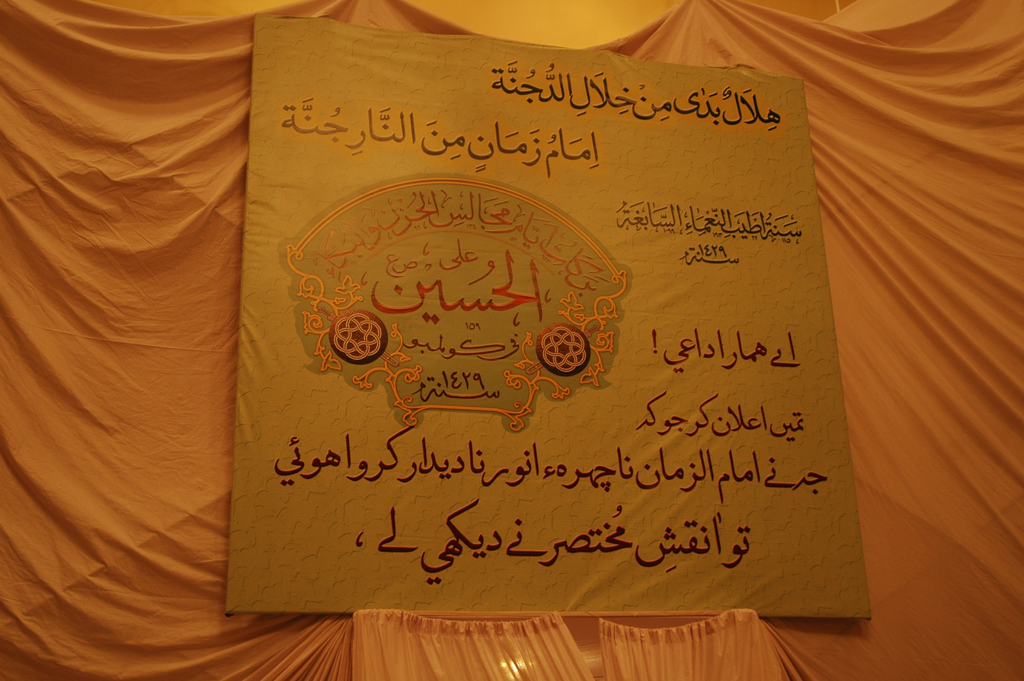 هِلَالٌ بَدٰى مِنْ خِلَالِ الدُّجُنَّة
اِمَامُ زَمَانٍ مِنَ النَّارِ جُنَّة
سَنَةُ اَطْيَبِ النَّعْمَاءِ السَّابِغَةِ
سنة ١٤٢٩م
مجالس الحزن والبكاء
على
الحسين ص ع
١٥٩
في كولمبو
سنة ١٤٢٩م
اے همارا داعي !
تميں اعلان کر جو کہ
جہ نے امام الزمان نا چهرهء انور نا ديدار کروا هوئي
تو اٰ نقشِ مُختصر نے ديكهي لے ،